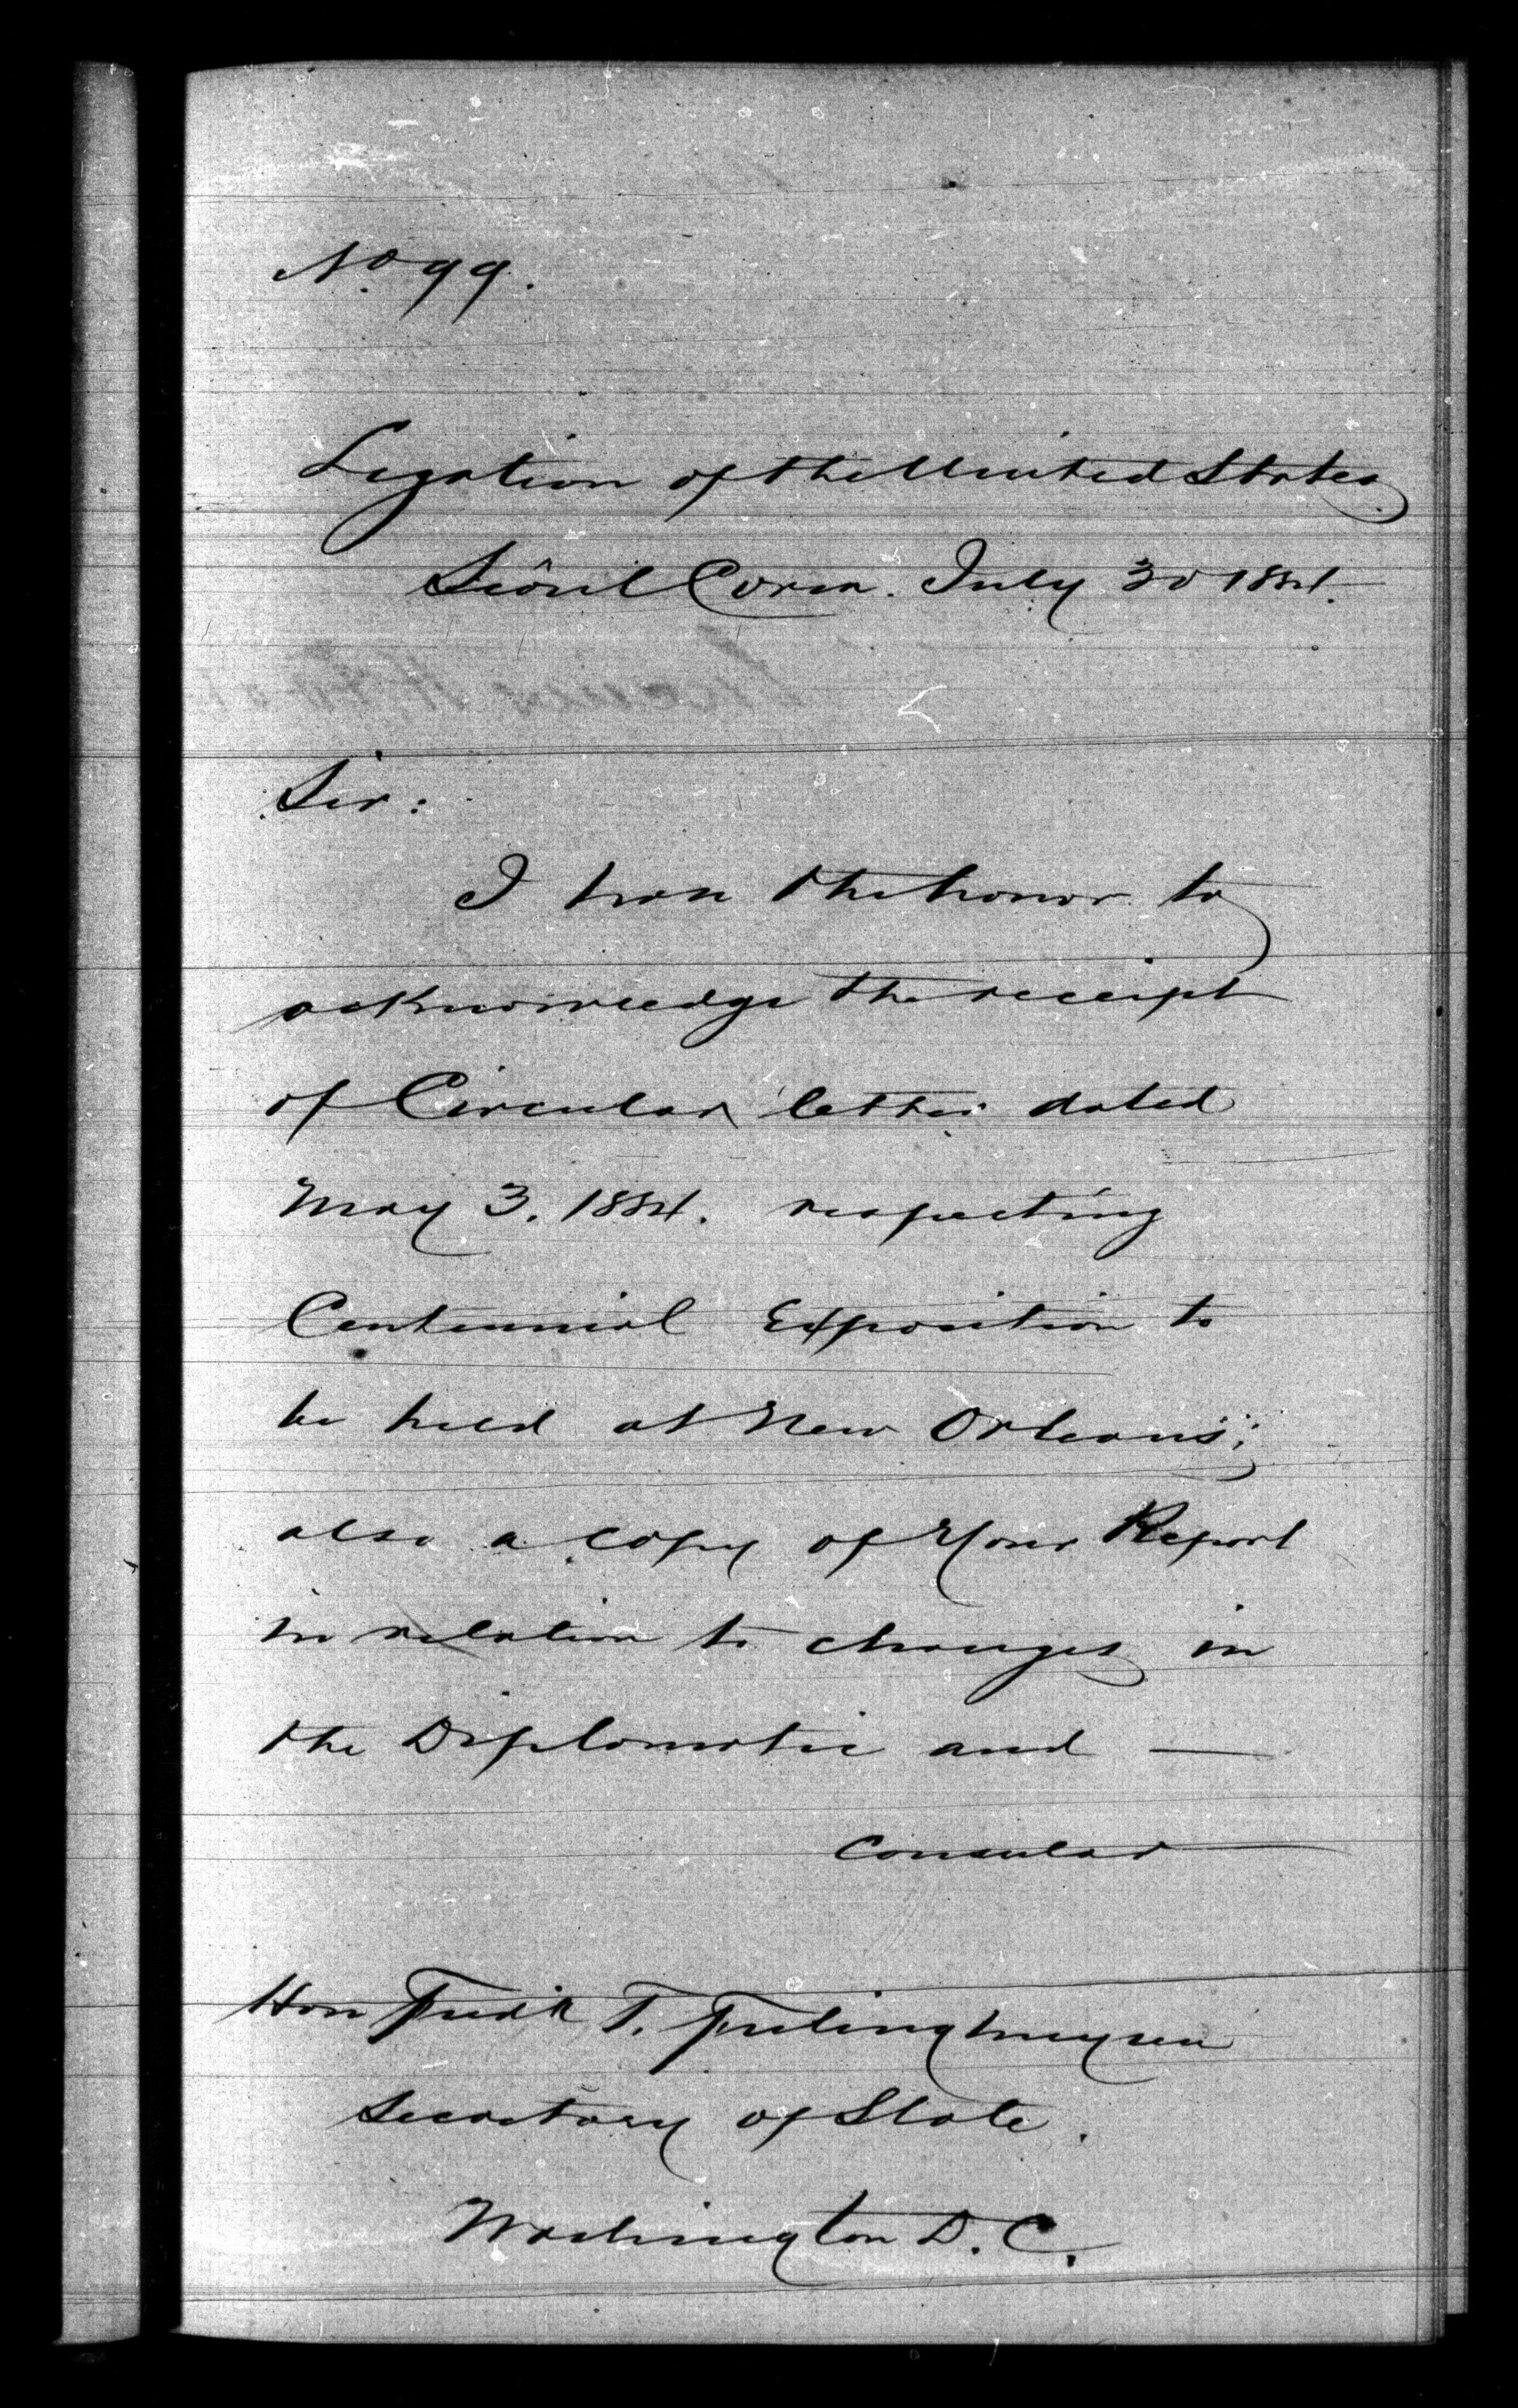 No 99.
Legation of the United States
Sëoul Corea. July 30 1884.
Sir:
I have the honor to
acknowledge the receipt
of Circular letter dated
May 3. 1884. respecting
Centennial Exposition to
be held at New Orleans;
also a copy of Your Report
in relation to changes in
the Diplomatic and —
Consular
Hon Fredk T. Frelinghuysen
Secretary of State.
Washington D.C.